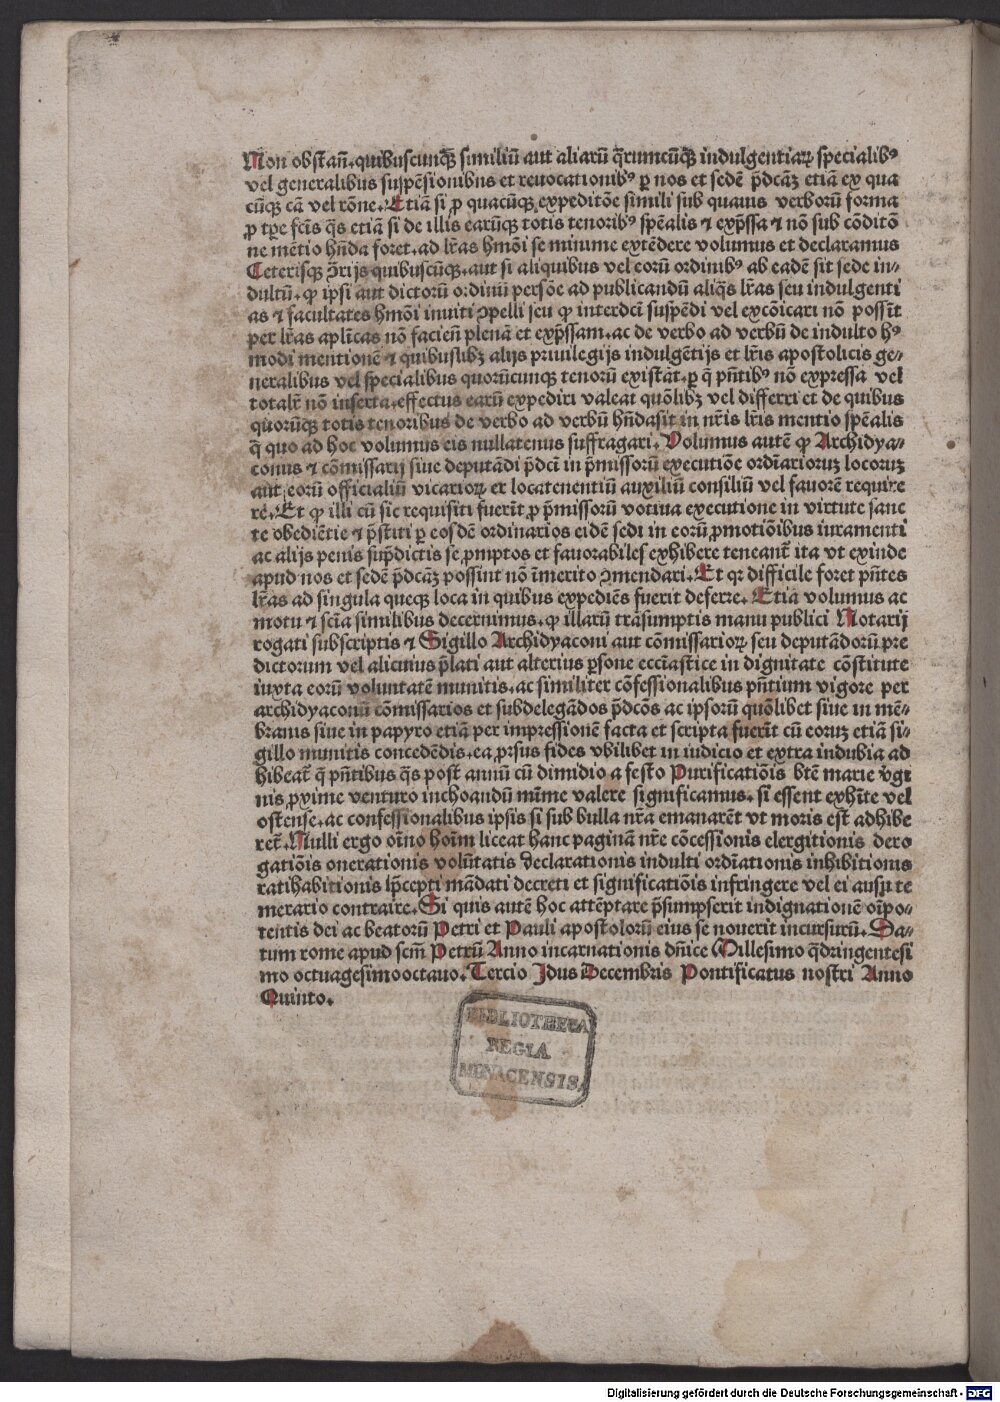 Non obstañ. quibuscunqꝫ similiū aut aliarū q̄rumcūqꝫ indulgentiaꝝ specialibꝰ
vel generalibus suspēsionibus et reuocationibꝰ ꝑ nos et sedē p̄dcāꝫ etiā ex qua
cūqꝫ cā vel rōne. Etiā si ꝓ quacūqꝫ expeditōe simili sub quauis verborū forma
ꝓ tꝑe fc̄is q̄s etiā si de illis earūqꝫ totis tenoribꝰ spēalis ⁊ exp̄ssa ⁊ nō sub cōditō
ne mētio hn̄da foret. ad lr̄as hmōi se minime extēdere volumus et declaramus
Ceterisqꝫ ꝯ̄rijs quibuscūqꝫ. aut si aliquibus vel eorū ordinibꝰ ab eadē sit sede in⸗
dultū. ꝙ ipsi aut dictorū ordinū persōe ad publicandū aliq̄s lr̄as seu indulgenti
as ⁊ facultates hmōi inuiti ꝯpelli seu ꝙ interdci suspēdi vel excōicari nō possīt
per lr̄as aplīcas nō facieñ plenā et exp̄ssam. ac de verbo ad verbū de indulto hꝰ
modi mentionē ⁊ quibuslibꝫ alijs priuilegijs indulgētijs et lr̄is apostolicis ge⸗
neralibus vel specialibus quorūcunqꝫ tenorū existāt. ꝑ q̄ pn̄tibꝰ nō expressa vel
totalr̄ nō inserta. effectus earū expediri valeat quōlibꝫ vel differri et de quibus
quorūqꝫ totis tenoribus de verbo ad verbū hn̄da sit in nr̄is lr̄is mentio spēalis
q̄ quo ad hoc volumus eis nullatenus suffragari. Volumus autē ꝙ Archidya⸗
conus ⁊ cōmissarij siue deputādi p̄dci in p̄missorū executiōe ordīarioruꝫ locoruꝫ
aut eorū officialiū vicarioꝝ er locatenentiū auxiliū consiliū vel fauorē require
rē. Et ꝙ illi cū sic requisiti fuerīt ꝓ p̄missorū votiua executione in virtute sanc
te obediētie ⁊ p̄stiti ꝑ eosdē ordinarios eidē sedi in eorū ꝓmotiōibus iuramenti
ac alijs penis sup̄dictis se ꝓmptos et fauorabiles exhibere teneant̄ ita vt exinde
apud nos et sedē p̄dcāꝫ possint nō īmerito ꝯmendari. Et qꝛ difficile foret pn̄tes
lr̄as ad singula queqꝫ loca in quibus expediēs fuerit deferre. Etiā volumus ac
motu ⁊ scīa similibus decernimus. ꝙ illarū trāsumptis manu publici Notarij
rogati subscriptis ⁊ Sigillo Archidyaconi aut cōmissarioꝝ seu deputādorū pre
dictorum vel alicuius p̄lati aut alterius ꝑsone eccīastice in dignitate cōstitute
iuxta eorū voluntatē munitis. ac similiter cōfessionalibus pn̄tium vigore per
archidyaconū cōmissarios et subdelegādos p̄dcōs ac ipsorū quōlibet siue in mē⸗
branis siue in papyro etiā per impressionē facta et scripta fuerīt cū eoruꝫ etiā si⸗
gillo munitis concedēdis. ea ꝓrsus fides vbilibet in iudicio et extra indubia ad
hibeat̄ q̄ pn̄tibus q̄s post annū cū dimidio a festo Purificatiōis btē marie v̄gi
nis ꝓxime venturo inchoandū mīme valere significamus. si essent exhīte vel
ostense. ac confessionalibus ipsis si sub bulla nr̄a emanarēt vt moris est adhibe
ret̄. Nulli ergo oīno hoīm liceat hanc paginā nr̄e cōcessionis elergitionis dero
gatiōis onerationis volūtatis declarationis indulti ordīationis inhibitionis
ratihabitionis lp̄cepti mādati decreti et significatiōis infringere vel ei ausu te
merario contraire. Si quis autē hoc attēptare p̄sumpserit indignationē oīpo⸗
tentis dei ac beatorū Petri et Pauli apostolorū eius se nouerit incursurū. Da⸗
tum rome apud scm̄ Petrū Anno incarnationis dn̄ice Millesimo q̄dringentesi
mo octuagesimooctauo. Tercio Jdus Decembris Pontificatus nostri Anno
Quinto.
BIBLIOTHECA
REGIA
MONACENSIS.
Digitalisierung gefördert durch die Deutsche Forschungsgemeinschaft - DFG